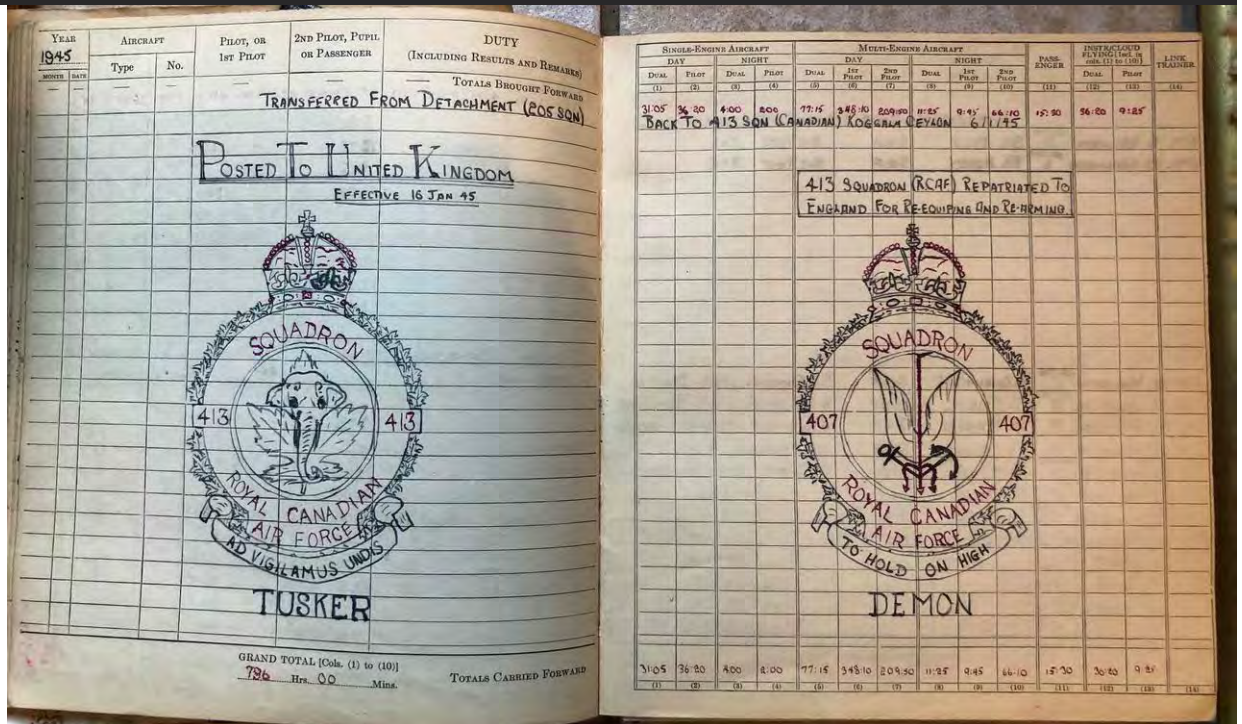 YEAR
1945
MONTH DATE
AIRCRAFT
Type No.
PILOT, OR
1ST PILOT
2ND PILOT, PUPIL
OR PASSENGER
DUTY
(INCLUDING RESULTS AND REMARKS)
— — — TOTALS BROUGHT FORWARD
TRANSFERRED FROM DETACHMENT (205 SQN)
POSTED TO UNITED KINGDOM
EFFECTIVE 16 JAN 45
SQUADRON
413 413
ROYAL CANADIAN
AIR FORCE
AD VIGILAMUS UNDIS
TUSKER
GRAND TOTAL [Cols. (1) to (10)]
796 Hrs. 00 Mins.
TOTALS CARRIED FORWARD
SINGLE-ENGINE AIRCRAFT
DAY NIGHT
DUAL PILOT DUAL PILOT
(1) (2) (3) (4)
MULTI-ENGINE AIRCRAFT
DAY NIGHT
DUAL 1ST PILOT 2ND PILOT DUAL 1ST PILOT 2ND PILOT
(5) (6) (7) (8) (9) (10)
PASS-
ENGER
(11)
INSTR/CLOUD
FLYING [Incl. in
cols. (1) to (10)]
DUAL PILOT
(12) (13)
LINK
TRAINER
(14)
31:05 36:20 4:00 2:00 77:15 348:10 209:50 11:25 9:45 66:10 15:30 36:20 9:25
BACK TO 413 SQN (CANADIAN) KOGGALA CEYLON 6/1/45
413 SQUADRON (RCAF) REPATRIATED TO
ENGLAND FOR RE-EQUIPING AND RE-ARMING.
SQUADRON
407 407
ROYAL CANADIAN
AIR FORCE
TO HOLD ON HIGH
DEMON
31:05 36:20 4:00 2:00 77:15 348:10 209:50 11:25 9:45 66:10 15:30 36:20 9:25
(1) (2) (3) (4) (5) (6) (7) (8) (9) (10) (11) (12) (13) (14)